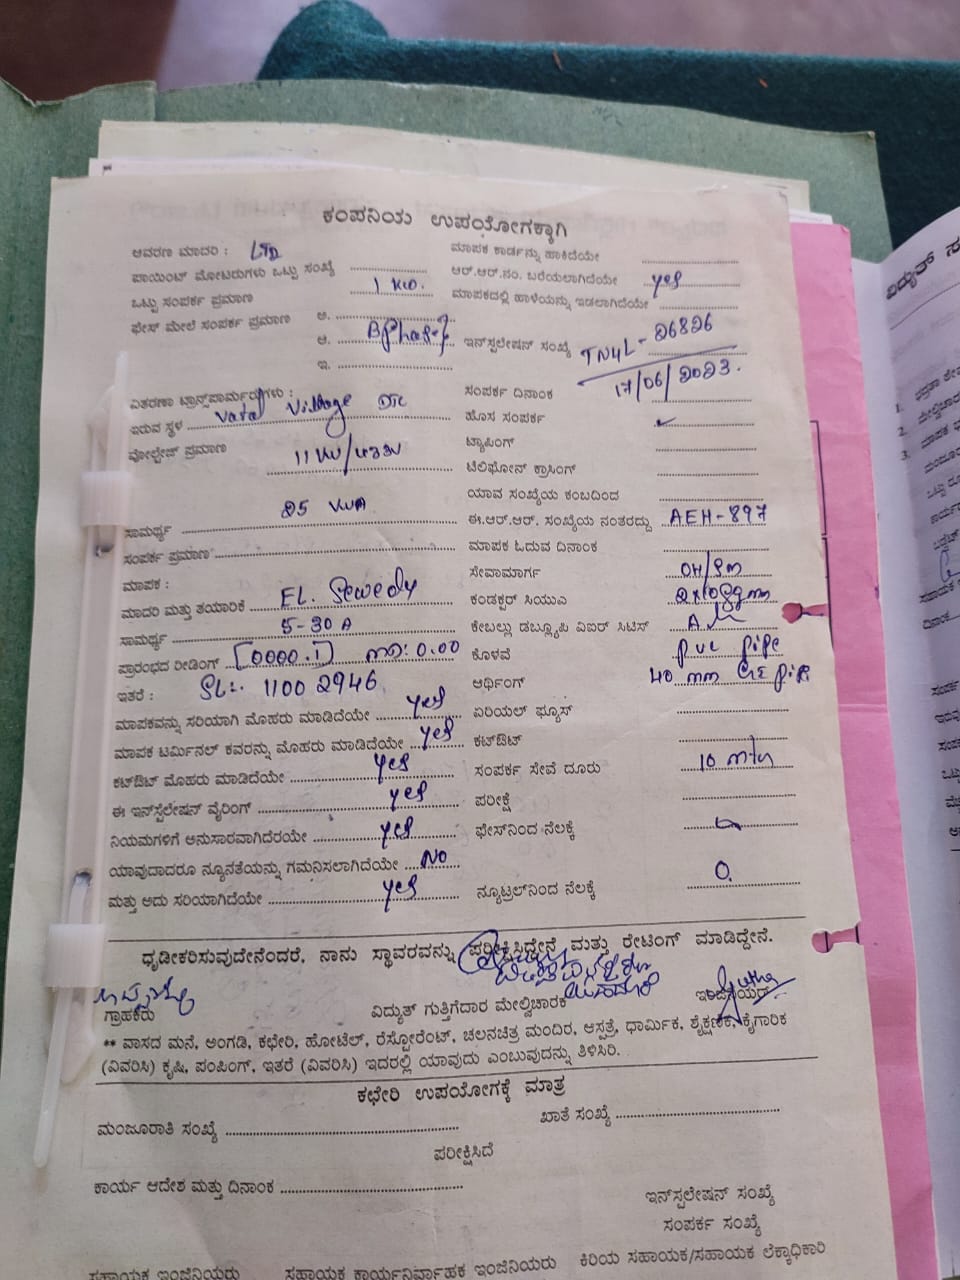 ಕಂಪನಿಯ ಉಪಯೋಗಕ್ಕಾಗಿ
ಆವರಣ ಮಾದರಿ :
ಮಾಪಕ ಕಾರ್ಡನ್ನು ಹಾಕಿದೆಯೇ
ಪಾಯಿಂಟ್ ಮೋಟರುಗಳು ಒಟ್ಟು ಸಂಖ್ಯೆ
ಆರ್.ಆರ್.ನಂ. ಬರೆಯಲಾಗಿದೆಯೇ yes
ಒಟ್ಟು ಸಂಪರ್ಕ ಪ್ರಮಾಣ
ಮಾಪಕದಲ್ಲಿ ಹಾಳೆಯನ್ನು ಇಡಲಾಗಿದೆಯೇ
ಫೇಸ್ ಮೇಲೆ ಸಂಪರ್ಕ ಪ್ರಮಾಣ ಅ.
ಆ.
ಇನ್‌ಸ್ಟಲೇಷನ್ ಸಂಖ್ಯೆ TN4L-26826
ಇ.
17/06/2023.
ಸಂಪರ್ಕ ದಿನಾಂಕ
ವಿತರಣಾ ಟ್ರಾನ್ಸ್‌ಪಾರ್ಮರುಗಳು :
ಇರುವ ಸ್ಥಳ Vatal Village
ಹೊಸ ಸಂಪರ್ಕ ✓
ವೋಲ್ಟೇಜ್ ಪ್ರಮಾಣ
ಟ್ಯಾಪಿಂಗ್
ಟೆಲಿಫೋನ್ ಕ್ರಾಸಿಂಗ್
ಯಾವ ಸಂಖ್ಯೆಯ ಕಂಬದಿಂದ
ಸಾಮರ್ಥ್ಯ 25 KVA
ಈ.ಆರ್.ಆರ್. ಸಂಖ್ಯೆಯ ನಂತರದ್ದು AEH-897
ಸಂಪರ್ಕ ಪ್ರಮಾಣ
ಮಾಪಕ ಓದುವ ದಿನಾಂಕ
ಮಾಪಕ :
ಸೇವಾಮಾರ್ಗ OH/Sm
ಮಾದರಿ ಮತ್ತು ತಯಾರಿಕೆ EL. Sewedy
ಕಂಡಕ್ಟರ್ ಸಿಯುಎ
ಸಾಮರ್ಥ್ಯ 5-30 A
ಕೇಬಲ್ಲು ಡಬ್ಲ್ಯೂಪಿ ವಿಐರ್ ಸಿಟಿಸ್
ಪ್ರಾರಂಭದ ರೀಡಿಂಗ್ [0000.1] MD: 0.00
ಕೊಳವೆ PVC Pipe
ಇತರೆ : SL:. 1100 2946
ಆರ್ಥಿಂಗ್ 40 mm GI Pipe
ಮಾಪಕವನ್ನು ಸರಿಯಾಗಿ ಮೊಹರು ಮಾಡಿದೆಯೇ yes
ಏರಿಯಲ್ ಫ್ಯೂಸ್
ಮಾಪಕ ಟರ್ಮಿನಲ್ ಕವರನ್ನು ಮೊಹರು ಮಾಡಿದೆಯೇ yes
ಕಟ್‌ಔಟ್
ಕಟ್‌ಔಟ್ ಮೊಹರು ಮಾಡಿದೆಯೇ yes
ಸಂಪರ್ಕ ಸೇವೆ ದೂರು 10 mtr
ಈ ಇನ್‌ಸ್ಟೆಲೇಷನ್ ವೈರಿಂಗ್ yes
ಪರೀಕ್ಷೆ
ನಿಯಮಗಳಿಗೆ ಅನುಸಾರವಾಗಿದೆರಯೇ yes
ಫೇಸ್‌ನಿಂದ ನೆಲಕ್ಕೆ
ಯಾವುದಾದರೂ ನ್ಯೂನತೆಯನ್ನು ಗಮನಿಸಲಾಗಿದೆಯೇ NO
ಮತ್ತು ಅದು ಸರಿಯಾಗಿದೆಯೇ yes
ನ್ಯೂಟ್ರಲ್‌ನಿಂದ ನೆಲಕ್ಕೆ 0.
ಧೃಡೀಕರಿಸುವುದೇನೆಂದರೆ, ನಾನು ಸ್ಥಾವರವನ್ನು ಪರೀಕ್ಷಿಸಿದ್ದೇನೆ ಮತ್ತು ರೇಟಿಂಗ್ ಮಾಡಿದ್ದೇನೆ.
ಗ್ರಾಹಕರು
ವಿದ್ಯುತ್ ಗುತ್ತಿಗೆದಾರ ಮೇಲ್ವಿಚಾರಕ
ಇಂಜಿನಿಯರ್
** ವಾಸದ ಮನೆ, ಅಂಗಡಿ, ಕಛೇರಿ, ಹೋಟೆಲ್, ರೆಸ್ಟೋರೆಂಟ್, ಚಲನಚಿತ್ರ ಮಂದಿರ, ಆಸ್ಪತ್ರೆ, ಧಾರ್ಮಿಕ, ಶೈಕ್ಷಣಿಕ, ಕೈಗಾರಿಕ
(ವಿವರಿಸಿ) ಕೃಷಿ, ಪಂಪಿಂಗ್, ಇತರೆ (ವಿವರಿಸಿ) ಇದರಲ್ಲಿ ಯಾವುದು ಎಂಬುವುದನ್ನು ತಿಳಿಸಿರಿ.
ಕಛೇರಿ ಉಪಯೋಗಕ್ಕೆ ಮಾತ್ರ
ಮಂಜೂರಾತಿ ಸಂಖ್ಯೆ
ಖಾತೆ ಸಂಖ್ಯೆ
ಪರೀಕ್ಷಿಸಿದೆ
ಕಾರ್ಯ ಆದೇಶ ಮತ್ತು ದಿನಾಂಕ
ಇನ್‌ಸ್ಟಲೇಷನ್ ಸಂಖ್ಯೆ
ಸಂಪರ್ಕ ಸಂಖ್ಯೆ
ಸಹಾಯಕ ಇಂಜಿನಿಯರು
ಸಹಾಯಕ ಕಾರ್ಯನಿರ್ವಾಹಕ ಇಂಜಿನಿಯರು
ಕಿರಿಯ ಸಹಾಯಕ/ಸಹಾಯಕ ಲೆಕ್ಕಾಧಿಕಾರಿ